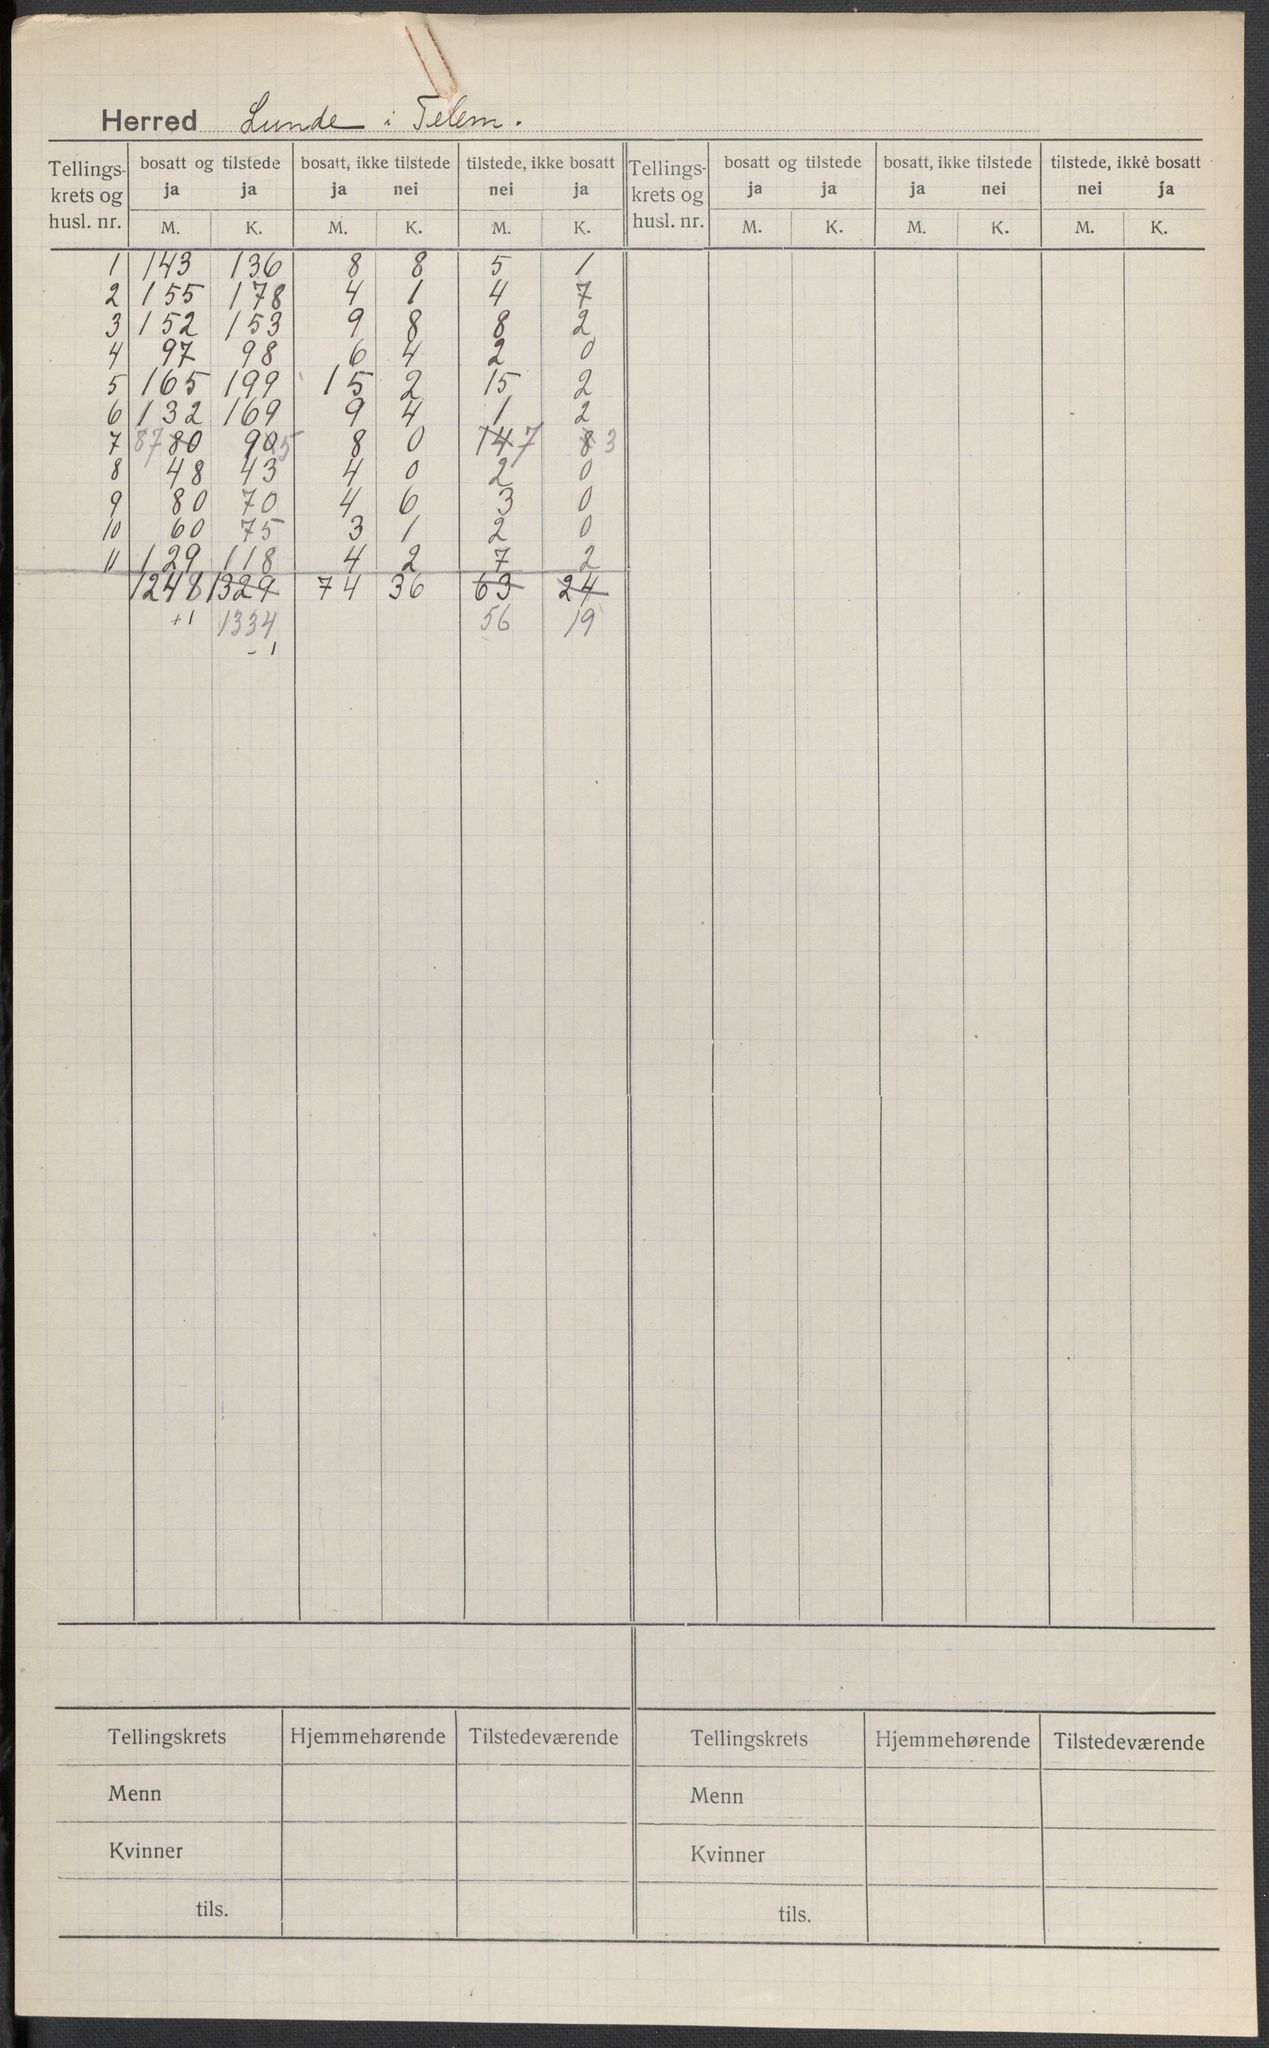 Herred Lunde i Telem.
Tellings-krets og husl. nr. bosatt og tilstede bosatt, ikke tilstede tilstede, ikke bosatt Tellings-krets og husl. nr. bosatt og tilstede bosatt, ikke tilstede tilstede, ikke bosatt
ja ja ja nei nei ja ja ja ja nei nei ja
M. K. M. K. M. K. M. K. M. K. M. K.
1 143 136 8 8 5 1
2 155 178 4 1 4 7
3 152 153 9 8 8 2
4 97 98 6 4 2 0
5 165 199 15 2 15 2
6 132 169 9 4 1 2
7 87 80 90 5 8 0 14 7 8 3
8 48 43 4 0 2 0
9 80 70 4 6 3 0
10 60 75 3 1 2 0
11 129 118 4 2 7 2
1248 1329 74 36 63 24
+1 1334 56 19
-1
Tellingskrets Hjemmehørende Tilstedeværende Tellingskrets Hjemmehørende Tilstedeværende
Menn Menn
Kvinner Kvinner
tils. tils.